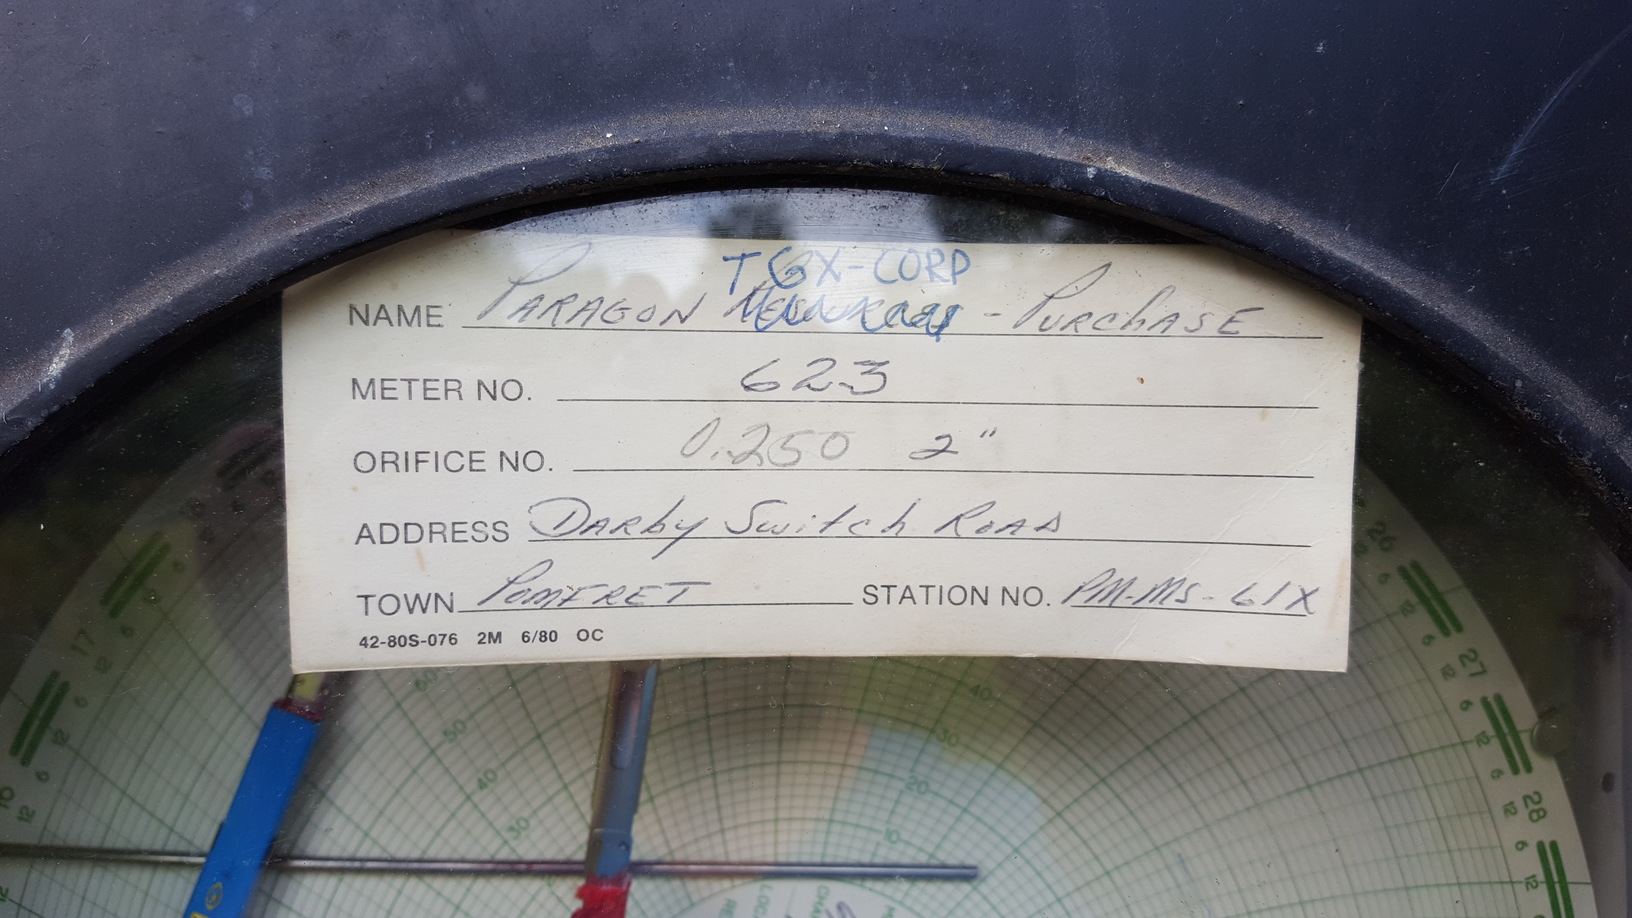 TGX-CORP
NAME PARAGON - PURCHASE
METER NO. 623
ORIFICE NO. 0.250 2"
ADDRESS DARby Switch ROAD
TOWN POMFRET STATION NO. PM-MS-61X
42-80S-076 2M 6/80 OC
26
6
17
12
6
12
6
12
6
12
27
6
12
6
12
28
6
12
60
50
40
30
40
30
20